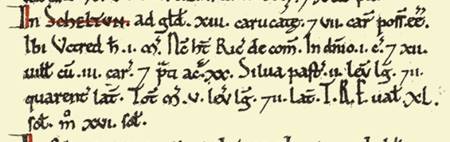 In Scheltun. ad gld. xiii. carucatę. 7 vii. car poss. ee.
Ibi Uctred h̄. i. m̄. Nc̄ ht̄ Ric̄ de com̄. In dnīo. i. c̄. 7 xii.
uilł cū. iii. car̄. 7 p̄ti ac̄. xx. Silua past̄. ii. leu̅ lḡ. 7 ii.
quarent̄ lat̄. Tot̄ m̄. v. leu̅ lḡ. 7 ii. lat̄. T. R. E. ual̄ xl.
sol̄. m̊ xvi. sol̄.